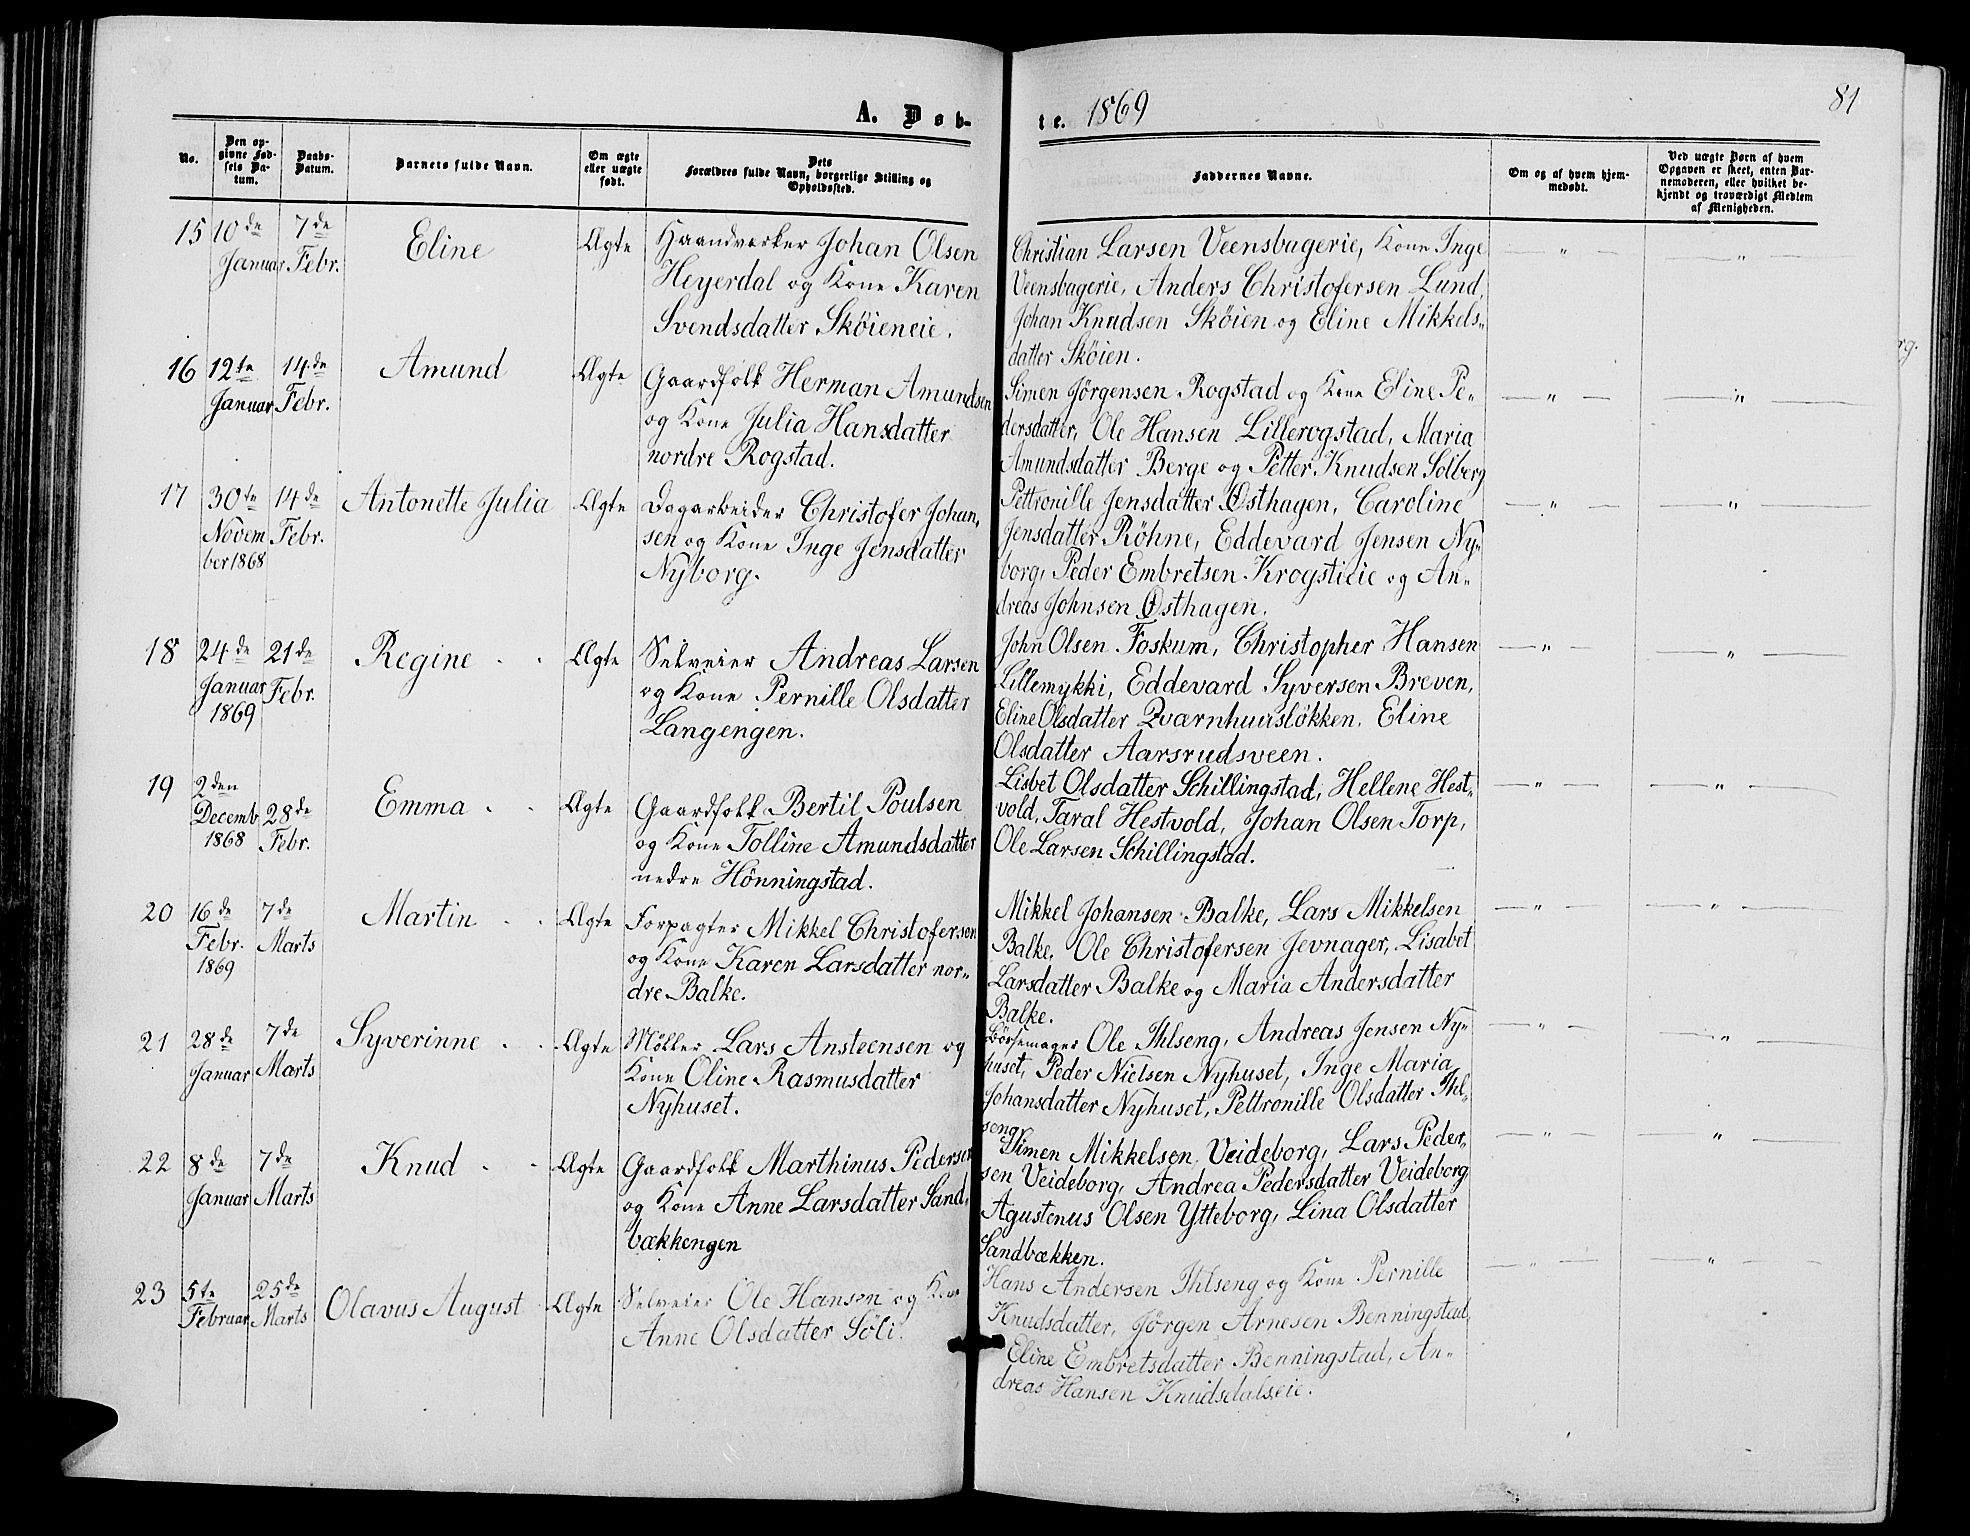 81
A. Døb-
te. 1869
No.
Den op-
givne Fød-
sels Da-
tum.
Daabs-
Datum.
Barnets fulde Navn.
Om ægte
eller uægte
født.
Dets
Forældres fulde Navn, borgerlige Stilling og
Opholdssted.
Faddernes Navne.
Om og af hvem hjem-
medøbt.
Ved uægte Børn af hvem
Opgaven er skeet, enten Bar-
nemoderen, eller hvilket be-
kjendt og troværdigt Medlem
af Menigheden.
15
10de
Januar
7de
Febr.
Eline
Ægte
Haandværker Johan Olsen
Heyerdal og Kone Karen
Svendsdatter Skøieneie.
Christian Larsen Veensbagerie, Kone Inge
Veensbagerie, Anders Christofersen Lund,
Johan Knudsen Skøien og Eline Mikkels-
datter Skøien.
— " —
— " —
16
12te
Januar
14de
Febr.
Amund
Ægte
Gaardfolk Herman Amundsen
og Kone Julia Hansdatter
nordre Rogstad.
Simen Jörgensen Rogstad og Kone Eline Pe-
dersdatter, Ole Hansen Lillerogstad, Maria
Amundsdatter Berge og Petter Knudsen Solberg
— " —
— " —
17
30te
Novem
ber 1868
14de
Febr.
Antonette Julia
Ægte
Dagarbeider Christofer Johan-
sen og Kone Inge Jensdatter
Nyborg.
Pettronille Jensdatter Østhagen, Caroline
Jensdatter Röhne, Eddevard Jensen Ny-
borg, Peder Embretsen Krogstieie og An-
dreas Johnsen Østhagen.
— " —
— " —
18
24de
Januar
1869
21de
Febr.
Regine
Ægte
Selveier Andreas Larsen
og Kone Pernille Olsdatter
Langengen.
John Olsen Foskum, Christopher Hansen
Lillemykki, Eddevard Syversen Breven,
Eline Olsdatter Qværnhuusløkken, Eline
Olsdatter Aarsrudsveen.
— " —
— " —
19
2den
Decemb
1868
28de
Febr.
Emma
Ægte
Gaardfolk Bertil Poulsen
og Kone Tolline Amundsdatter
nedre Hönningstad.
Lisbet Olsdatter Schillingstad, Hellene Hest-
vold, Taral Hestvold, Johan Olsen Torp,
Ole Larsen Schillingstad.
— " —
— " —
20
16de
Febr.
1869
7de
Marts
Martin
Ægte
Forpagter Mikkel Christofersen
og Kone Karen Larsdatter nor-
dre Balke.
Mikkel Johansen Balke, Lars Mikkelsen
Balke, Ole Christofersen Jevnager, Lisabet
Larsdatter Balke og Maria Andersdatter
Balke.
— " —
— " —
21
28de
Januar
7de
Marts
Syverinne
Ægte
Møller Lars Ansteensen og
Kone Oline Rasmusdatter
Nyhuset.
Börsemager Ole Ihlseng, Andreas Jensen Ny-
huset, Peder Nielsen Nyhuset, Inge Maria
Johansdatter Nyhuset, Pettronille Olsdatter Ihl-
seng.
— " —
— " —
22
8de
Januar
7de
Marts
Knud
Ægte
Gaardfolk Marthinus Pedersen
og Kone Anne Larsdatter Sand-
bækkengen
Simen Mikkelsen Veideborg, Lars Peder-
sen Veideborg, Andrea Pedersdatter Veideborg
Agustenus Olsen Ytteborg, Lina Olsdatter
Sandbækken.
— " —
— " —
23
5te
Februar
25de
Marts
Olavus August
Ægte
Selveier Ole Hansen og Kone
Anne Olsdatter Söli.
Hans Andersen Ihlseng og Kone Pernille
Knudsdatter, Jörgen Arnesen Benningstad,
Eline Embretsdatter Benningstad, An-
dreas Hansen Knudsdalseie.
— " —
— " —